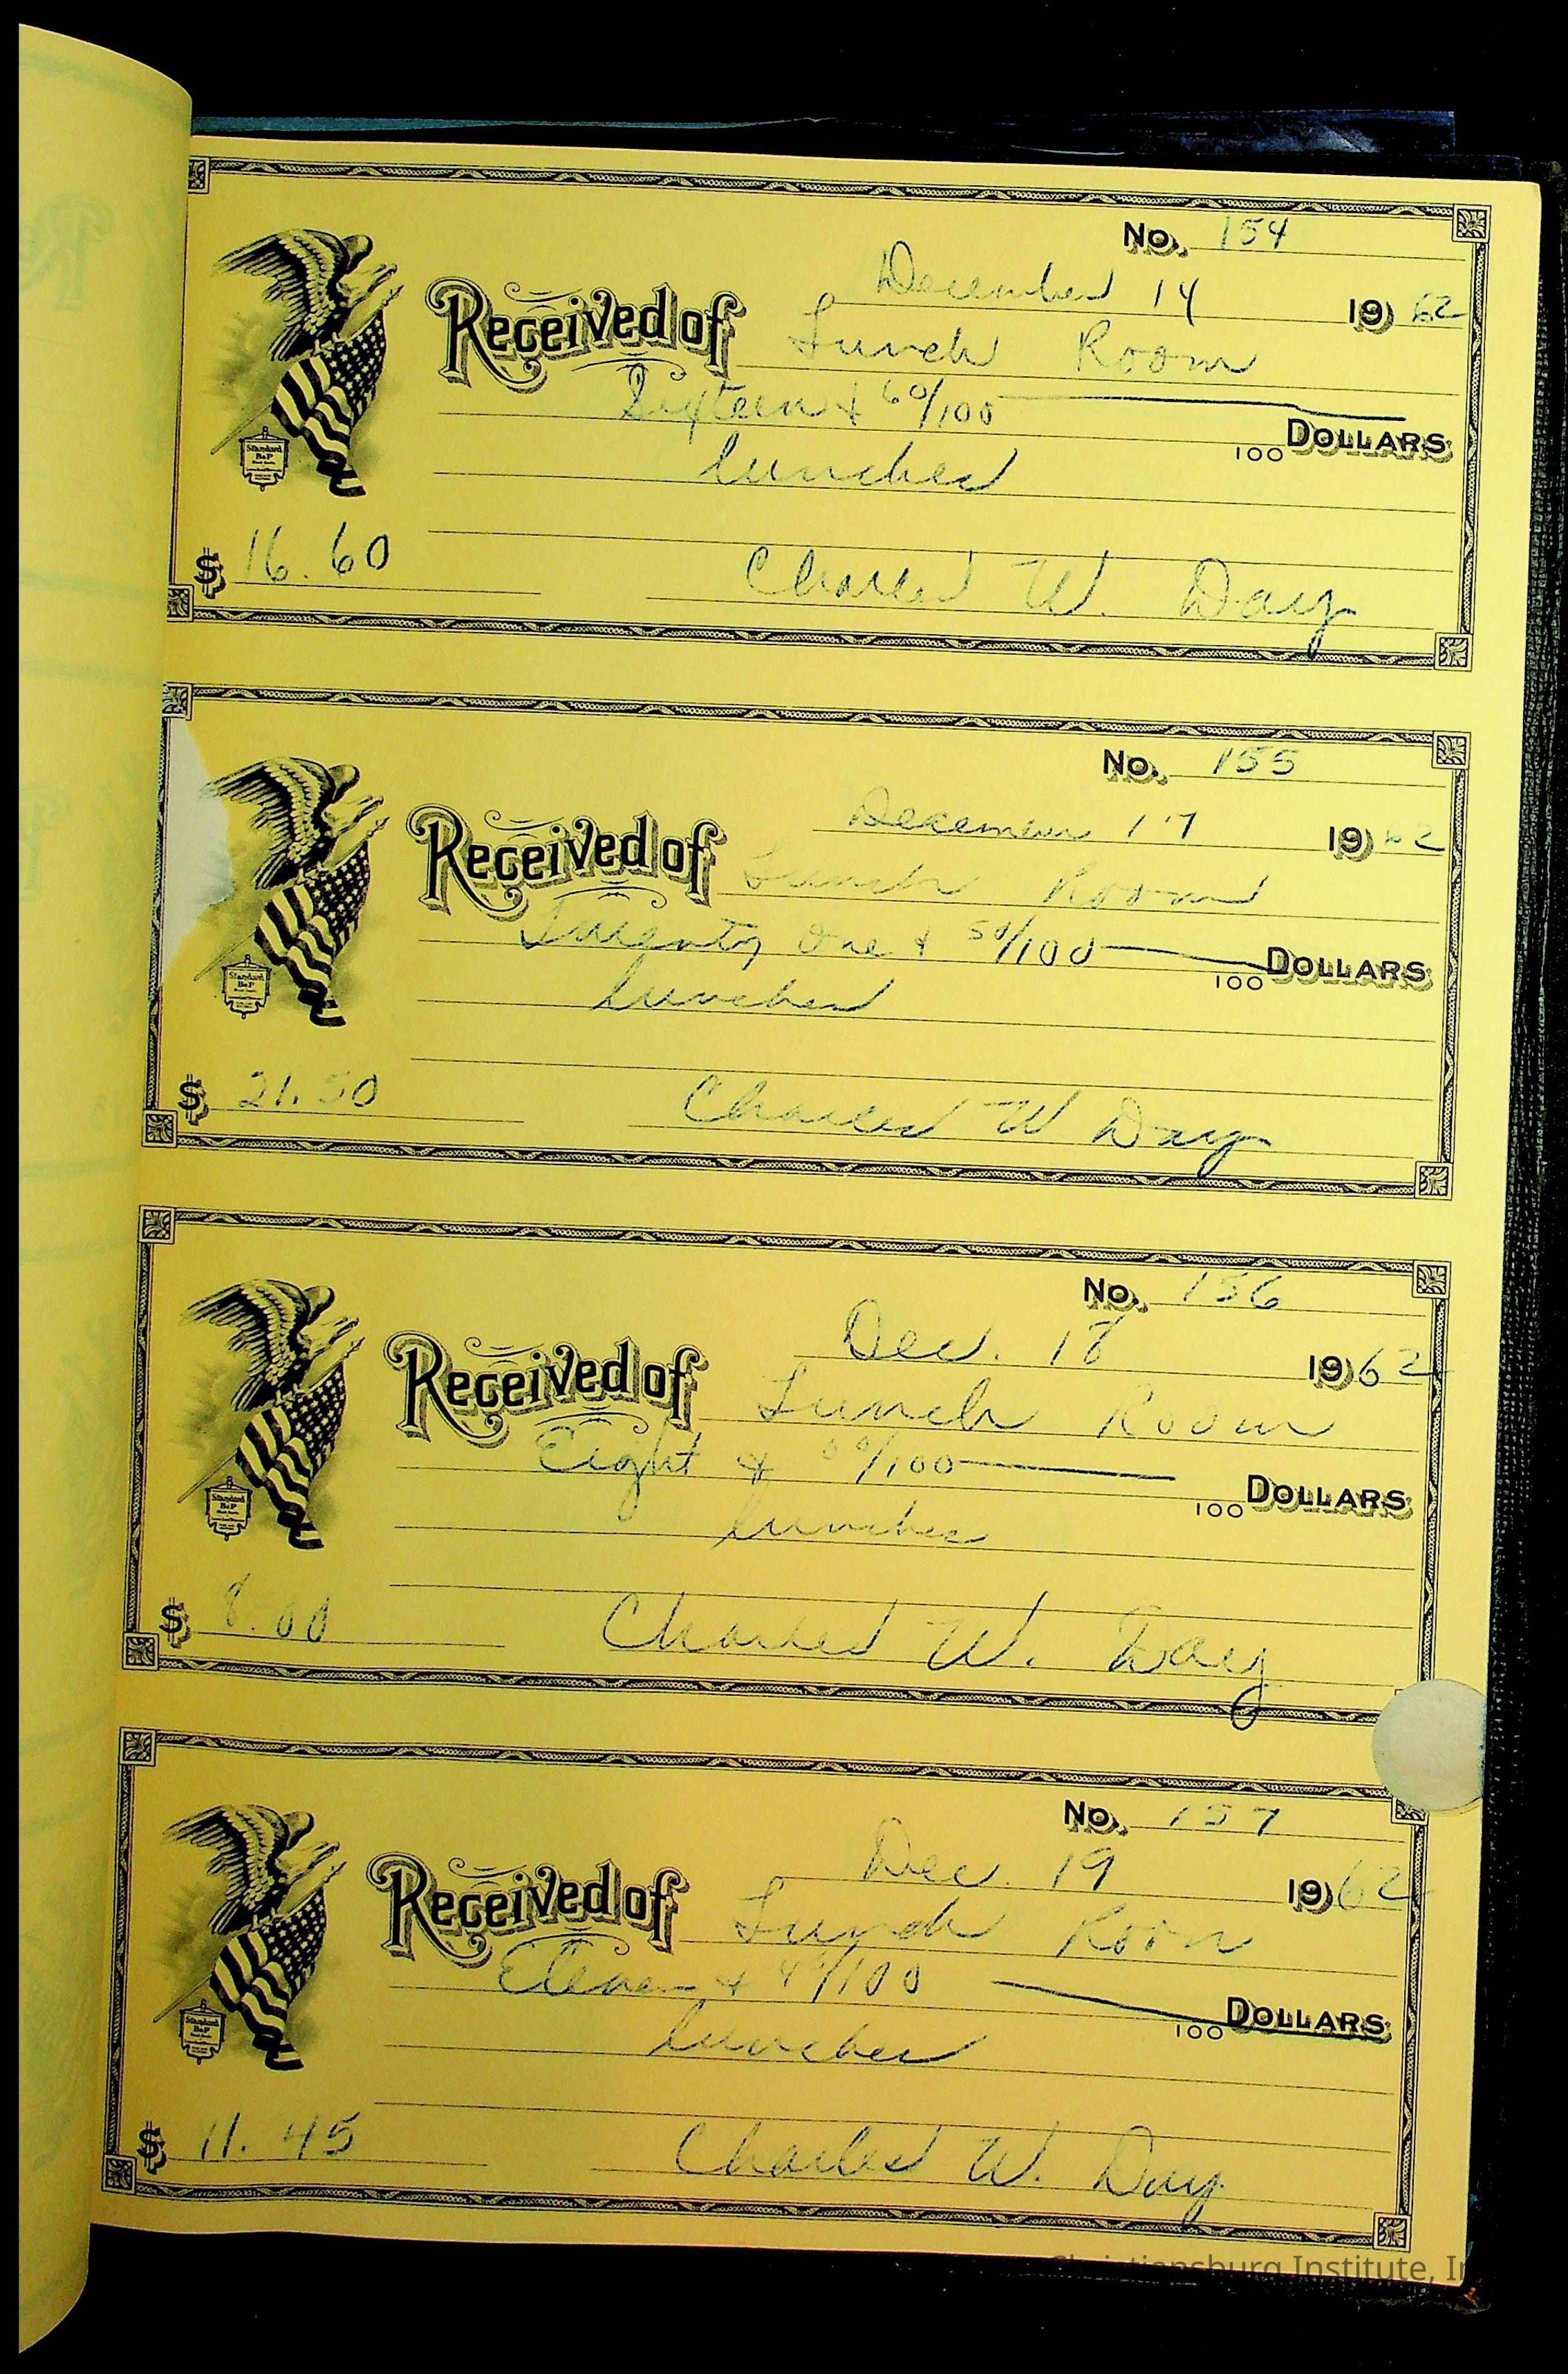 No. 154
December 14 1962
Received of Lunch Room
Sixteen & 60/100
100 DOLLARS
lunches
$ 16.60
Charles W. Day
No. 155
December 17 1962
Received of Lunch Room
Twenty One & 50/100
100 DOLLARS
lunches
$ 21.50
Charles W Day
No. 156
Dec. 18 1962
Received of Lunch Room
Eight & 00/100
100 DOLLARS
lunches
$ 8.00
Charles W. Day
No. 157
Dec. 19 1962
Received of Lunch Room
Eleven & 45/100
100 DOLLARS
lunches
$ 11.45
Charles W. Day
Christiansburg Institute, In